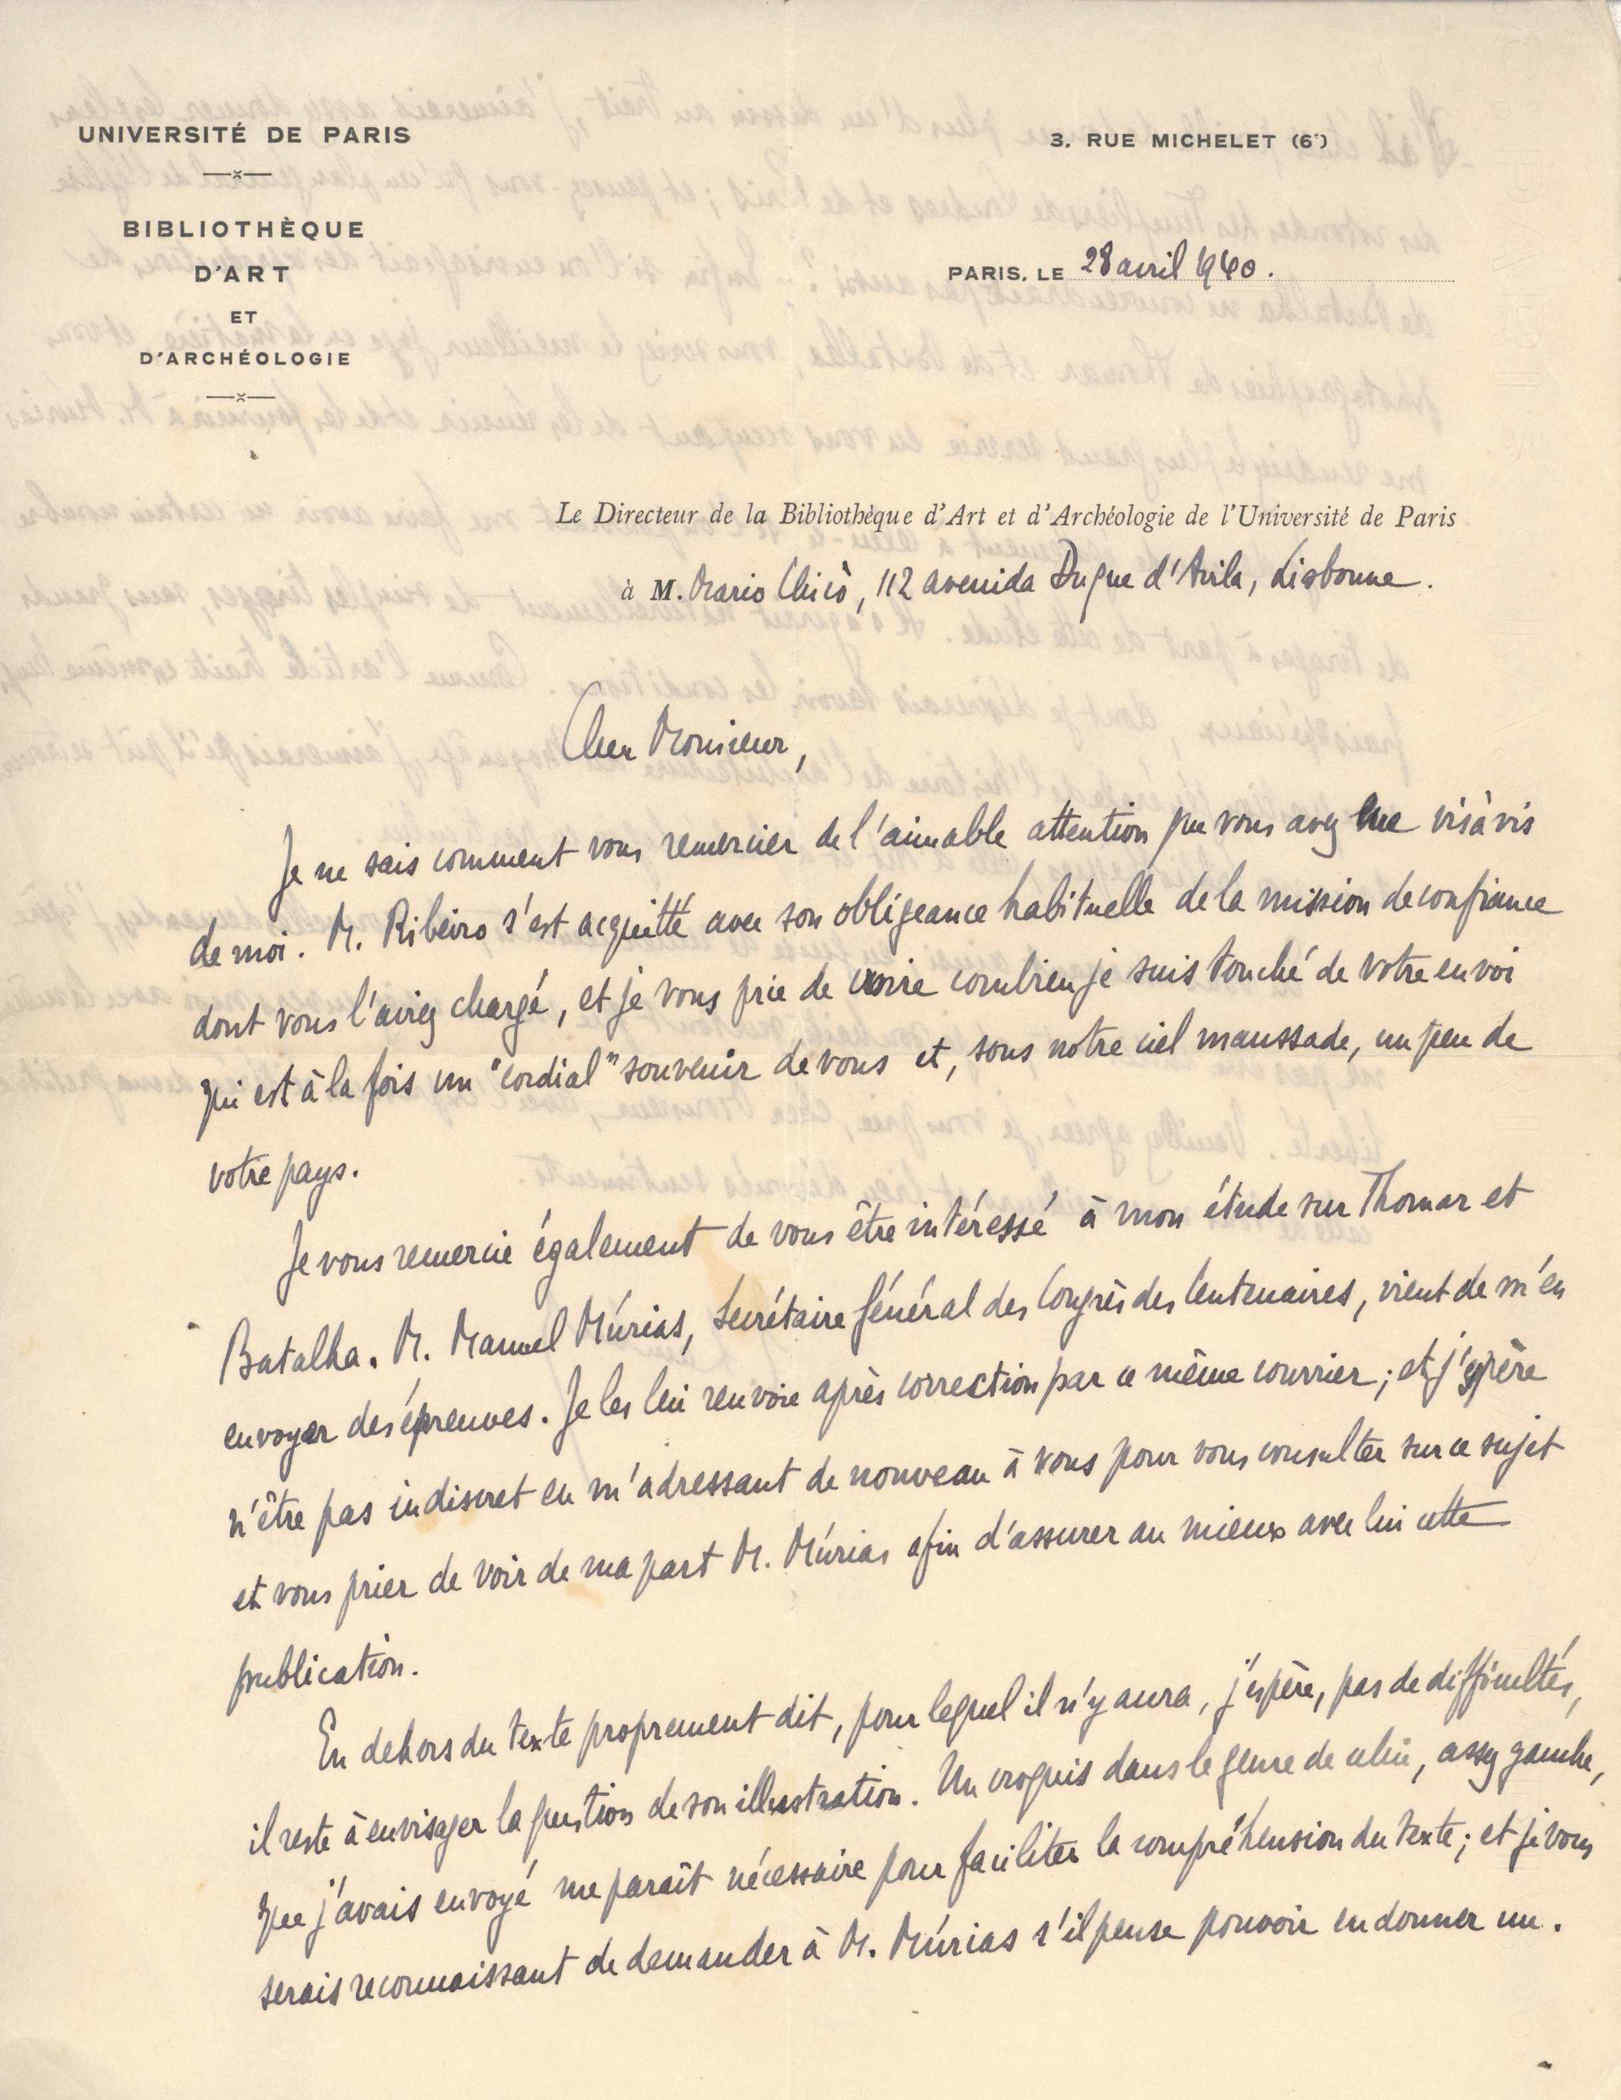 UNIVERSITÉ DE PARIS
BIBLIOTHÈQUE
D'ART
ET
D'ARCHÉOLOGIE
3, RUE MICHELET (6e)
PARIS, LE 28 avril 1940.
Le Directeur de la Bibliothèque d'Art et d'Archéologie de l'Université de Paris
à M. Mario Chicò, 112 avenida Duque d'Avila, Lisbonne.
Cher Monsieur,
Je ne sais comment vous remercier de l'aimable attention que vous avez eue vis à vis
de moi. M. Ribeiro s'est acquitté avec son obligeance habituelle de la mission de confiance
dont vous l'aviez chargé, et je vous prie de croire combien je suis touché de votre envoi
qui est à la fois un "cordial" souvenir de vous et, sous notre ciel maussade, un peu de
votre pays.
Je vous remercie également de vous être intéressé à mon étude sur Thomar et
Batalha. M. Manuel Múrias, Secrétaire Général des Congrès des Centenaires, vient de m'en
envoyer des épreuves. Je les lui renvoie après correction par ce même courrier ; et j'espère
n'être pas indiscret en m'adressant de nouveau à vous pour vous consulter sur ce sujet
et vous prier de voir de ma part M. Múrias afin d'assurer au mieux avec lui cette
publication.
En dehors du texte proprement dit, pour lequel il n'y aura, j'espère, pas de difficultés,
il reste à envisager la question de son illustration. Un croquis dans le genre de celui, assez gauche,
que j'avais envoyé me paraît nécessaire pour faciliter la compréhension du texte ; et je vous
serais reconnaissant de demander à M. Múrias s'il pense pouvoir en donner un.